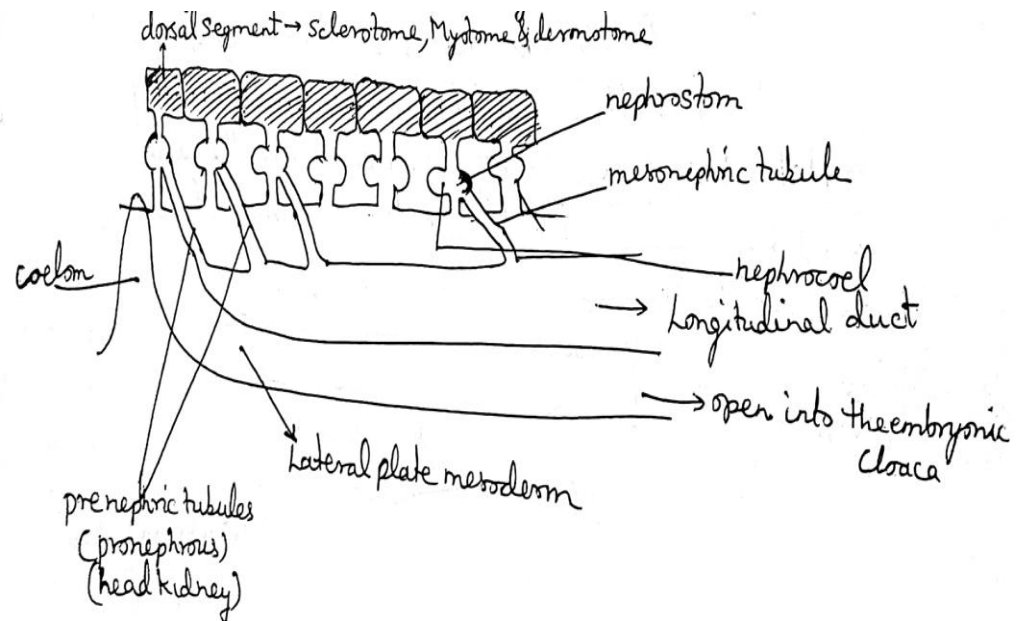 dorsal segment → Sclerotome, Myotome & dermotome
nephrostom
mesonephric tubule
coelom
nephrocoel
Longitudinal duct
open into the embryonic
Cloaca
Lateral plate mesoderm
prenephric tubules
(pronephrous)
(head kidney)